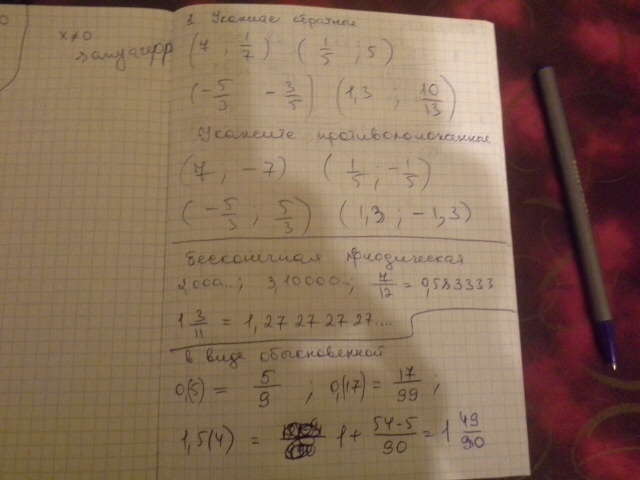 x≠0
1. Укажите обратные
(7 ; 1/7) (1/5 ; 5)
(-5/3 -3/5) (1,3 ; 10/13)
Укажите противоположные
(7, -7) (1/5 ; -1/5)
(-5/3 ; 5/3) (1,3 ; -1,3)
Бесконечная периодическая
2,000...; 3,10000...; 7/12 = 0,583333
1 3/11 = 1,27 27 27 27....
в виде обыкновенной
0,(5) = 5/9 ; 0,(17) = 17/99 ;
1,5(4) = 1 + 54-5/90 = 1 49/90